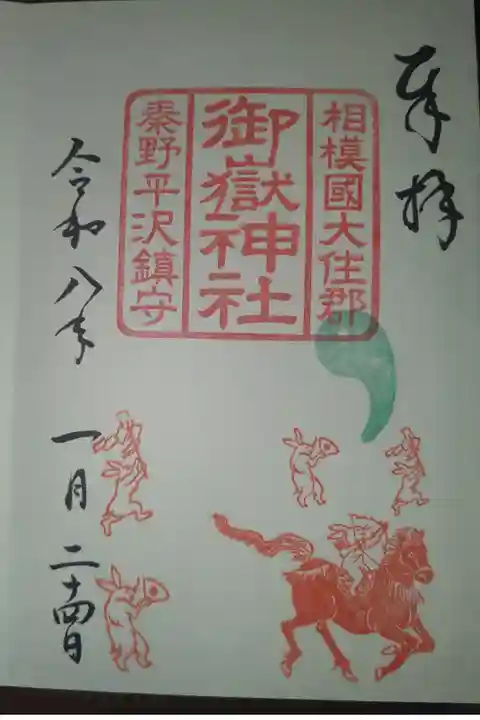 奉拝
相模國大住郡
御嶽神社
秦野平沢鎮守
令和八年
一月
二十四日